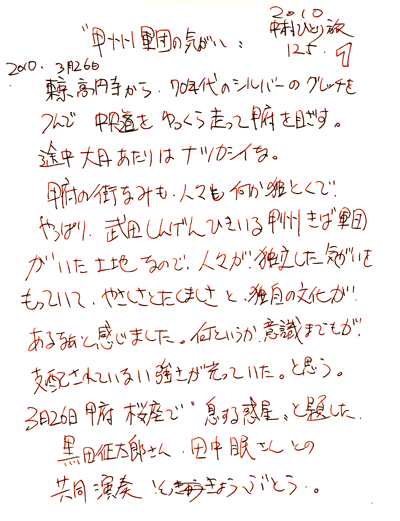 2010
中村ひとり旅
125.
"甲州軍団の気がい"
2010. 3月26日
東京高円寺から、70年代のシルバーのグレッチを
つんで 中央道を ゆっくら走って甲府を目ざす。
途中 大月あたりは ナツカシイな。
甲府の街なみも、人々も 何か独とくで
やっぱり、武田しんげんひきいる甲州きば軍団
がいた土地なので、人々が 独立した気がいを
もっていて、やさしさとたくましさと、独自の文化が
ある強いと感じました。何というか 意識までもが
支配されていない強さが光っていた。と思う。
3月26日 甲府 桜座で"息する惑星"と題した
黒田征太郎さん、田中眠さん との
共同演奏 どくきょうぶとう。